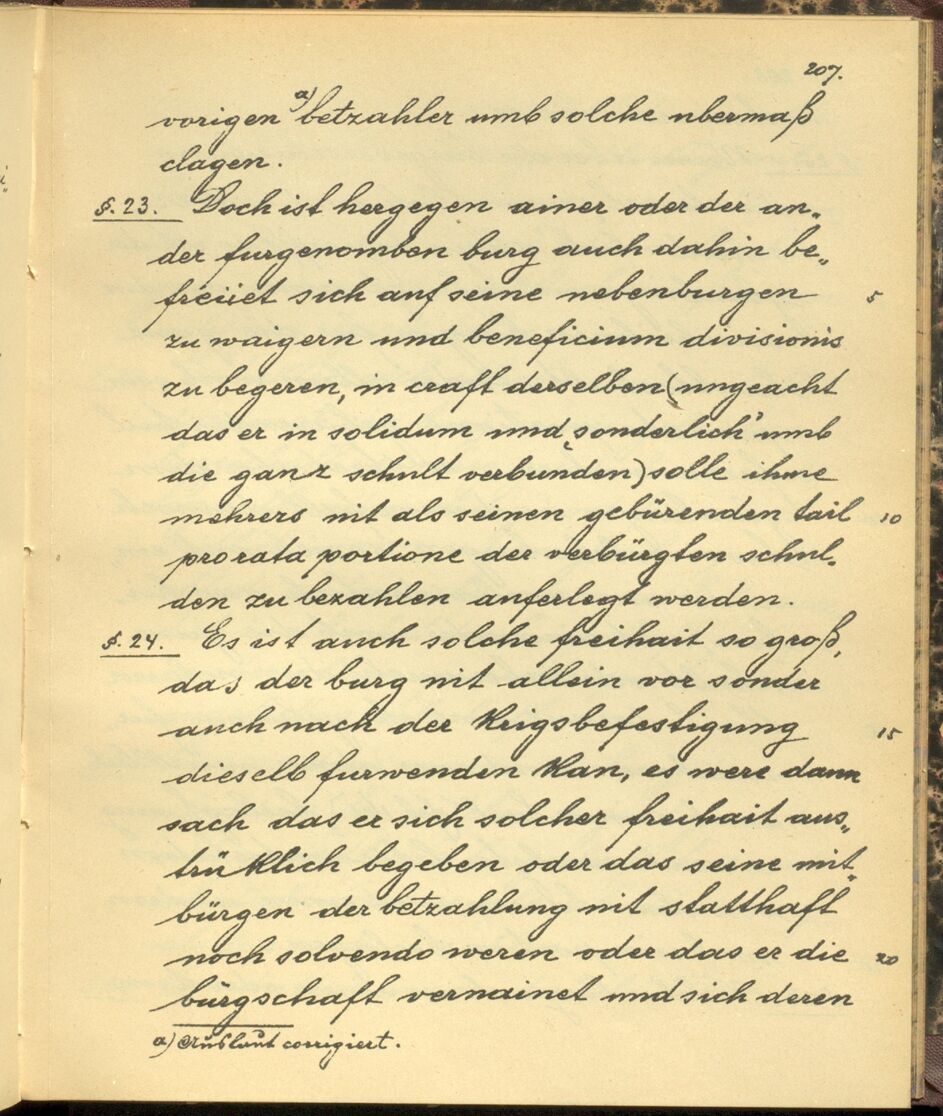 207.
vorigen a) betzahler umb solche ubermaß
clagen.
§. 23. Doch ist hergegen ainer oder der an„
der furgenomben burg auch dahin be„
freiiet sich auf seine nebenburgen 5
zu waigern und beneficium divisionis
zu begeren, in craft derselben (ungeacht
das er in solidum und „sonderlich“ umb
die ganz schult verbunden) solle ihme
mehrers nit als seinen gebürenden tail 10
pro rata portione der verbürgten schul„
den zu bezahlen auferlegt werden.
§. 24. Es ist auch solche freihait so groß,
das der burg nit allein vor sonder
auch nach der Krigsbefestigung 15
dieselb furwenden kan, es were dann
sach das er sich solcher freihait aus„
trüklich begeben oder das seine mit„
bürgen der betzahlung nit statthaft
noch solvendo weren oder das er die 20
bürgschaft vernainet und sich deren
a) Auslaut corrigiert.